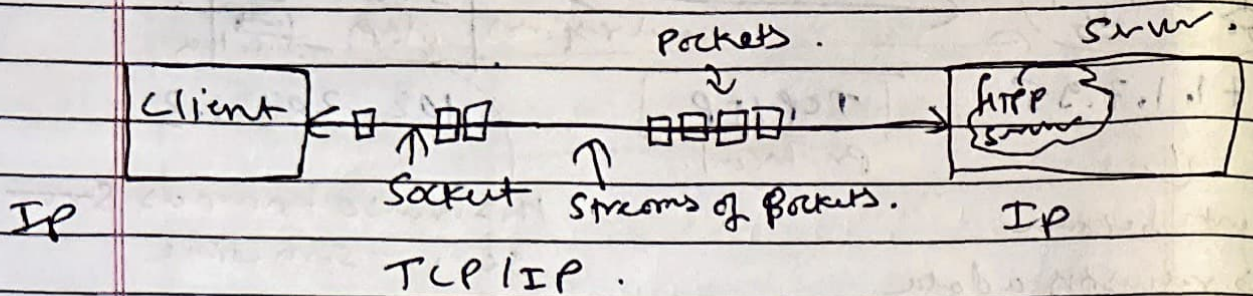 Packets. Server.
Client HTTP
Server
Socket Streams of Packets.
IP IP
TCP/IP.